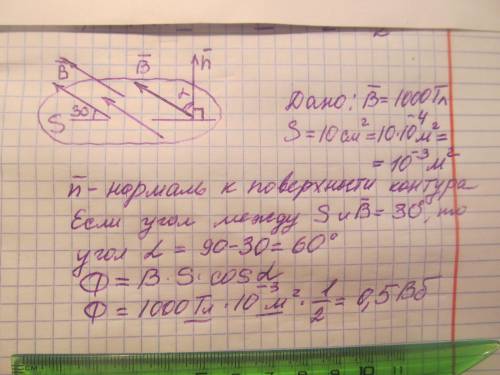 B̄ B̄ n̄
α
S 30°
Дано: B̄ = 1000 Тл
S = 10 см² = 10·10⁻⁴ м² =
= 10⁻³ м²
n̄ - нормаль к поверхности контура
Если угол между S и B̄ = 30°, то
угол α = 90-30 = 60°
Ф = B · S · cos α
Ф = 1000 Тл · 10⁻³ м² · 1/2 = 0,5 Вб
см 1 2 3 4 5 6 7 8 9 10 11